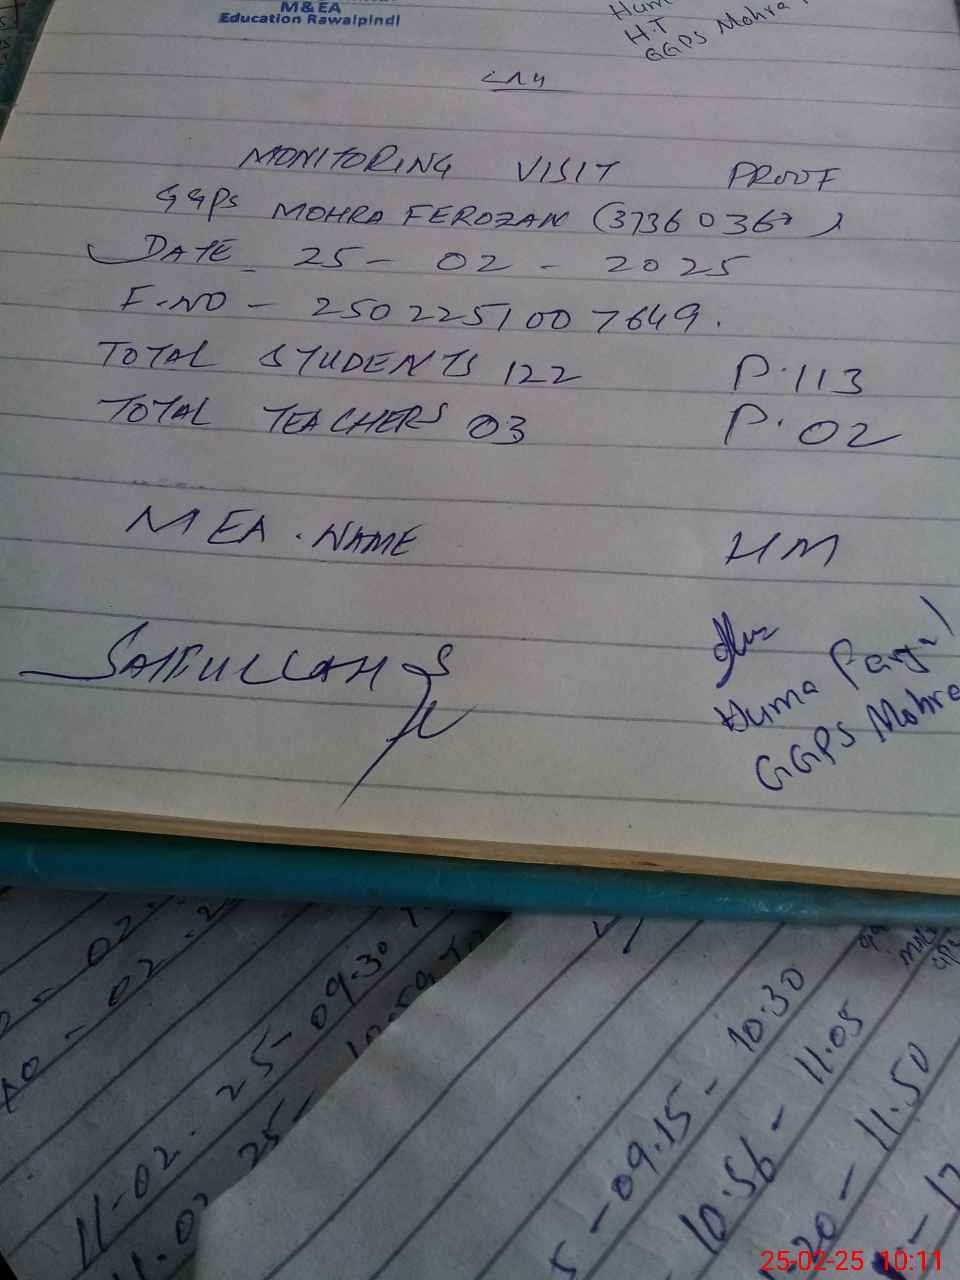 M&EA
Education Rawalpindi
H.T
GGPS Mohra
MONITORING VISIT PROOF
GGPS MOHRA FEROZAN (37360367)
DATE - 25 - 02 - 2025
F.NO - 2502251007649.
TOTAL STUDENTS 122 P.113
TOTAL TEACHERS 03 P.02
MEA. NAME HM
SAIFULLAH
Huma
GGPS Mohra
02
10 - 02 - 2
11-02. 25-09.30
25-
09.15 - 10:30
10:56 - 11.05
20 - 11.50
25-02-25 10:11